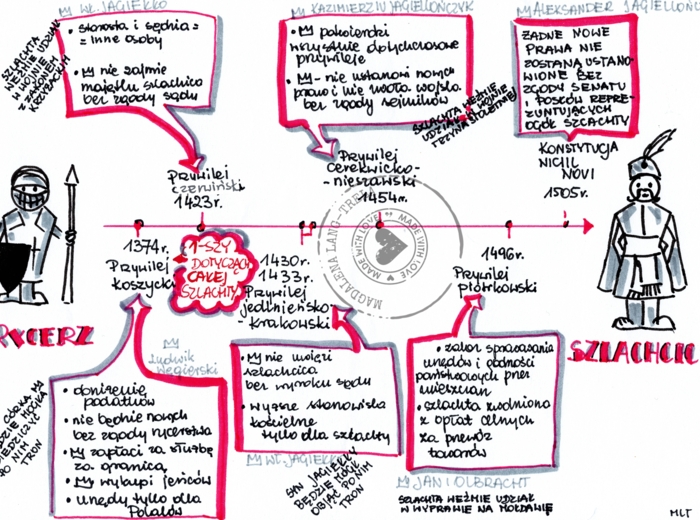 WŁ. JAGIEŁŁO
SZLACHTA
WEŹMIE UDZIAŁ
W WOJNIE
Z ZAKONEM
KRZYŻACKIM
• starosta i sędzia =
= inne osoby
• nie zajmie
majątku szlachcica
bez zgody sądu
KAZIMIERZ IV JAGIELLOŃCZYK
• potwierdzi
wszystkie dotychczasowe
przywileje
• - nie ustanowi nowych
praw i nie zwoła wojska
bez zgody sejmików
SZLACHTA WEŹMIE
UDZIAŁ W WOJNIE
TRZYNASTOLETNIEJ
ALEKSANDER JAGIELLOŃ
ŻADNE NOWE
PRAWA NIE
ZOSTANĄ USTANO-
WIONE BEZ
ZGODY SENATU
I POSŁÓW REPRE-
ZENTUJĄCYCH
OGÓŁ SZLACHTY
KONSTYTUCJA
NIHIL
NOVI
1505r.
Przywilej
czerwiński
1423r.
Przywilej
cerekwicko-
-nieszawski
1454r.
1374r.
Przywilej
koszycki
1-SZY
DOTYCZĄCY
CAŁEJ
SZLACHTY
1430r.
1433r.
Przywilej
jedlnieńsko-
-krakowski
MAGDALENA LANG-TREFA
MADE WITH LOVE
MADE WITH LOVE
1496r.
Przywilej
piotrkowski
RYCERZ
SZLACHCIC
Ludwik
Węgierski
CÓRKA
BĘDZIE MOGŁA
ODZIEDZICZYĆ
PO NIM
TRON
• obniżenie
podatków
• nie będzie nowych
bez zgody rycerstwa
• zapłaci za służbę
za granicą
• wykupi jeńców
• Urzędy tylko dla
Polaków
• nie uwięzi
szlachcica
bez wyroku sądu
• wyższe stanowiska
kościelne
tylko dla szlachty
WŁ. JAGIEŁŁO
SYN JAGIEŁŁY
BĘDZIE MÓGŁ
OBJĄĆ PO NIM
TRON
• zakaz sprawowania
urzędów i godności
państwowych przez
mieszczan
• szlachta zwolniona
z opłat celnych
za przewóz
towarów
JAN I OLBRACHT
SZLACHTA WEŹMIE UDZIAŁ
W WYPRAWIE NA MOŁDAWIĘ
MLT